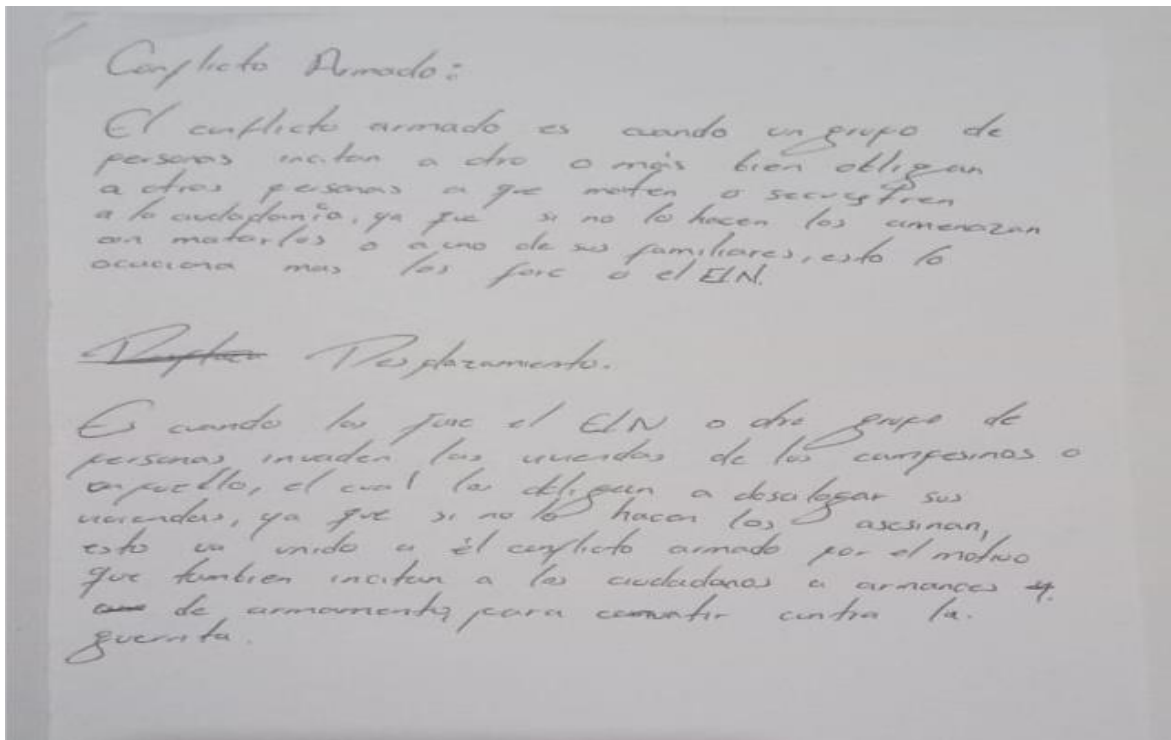 Conflicto Armado:
El conflicto armado es cuando un grupo de
personas incitan a otro o más bien obligan
a otras personas a que maten o secuestren
a la ciudadanía, ya que si no lo hacen los amenazan
con matarlos o a uno de sus familiares, esto lo
ocaciona mas las farc o el ELN.
Desplazamiento.
Es cuando las farc el ELN o otro grupo de
personas invaden las viviendas de los campesinos o
un pueblo, el cual los obligan a desalogar sus
viviendas, ya que si no lo hacen los asesinan,
esto va unido a él conflicto armado por el motivo
que tambien incitan a los ciudadanos a armances
de armamento para comvatir contra la.